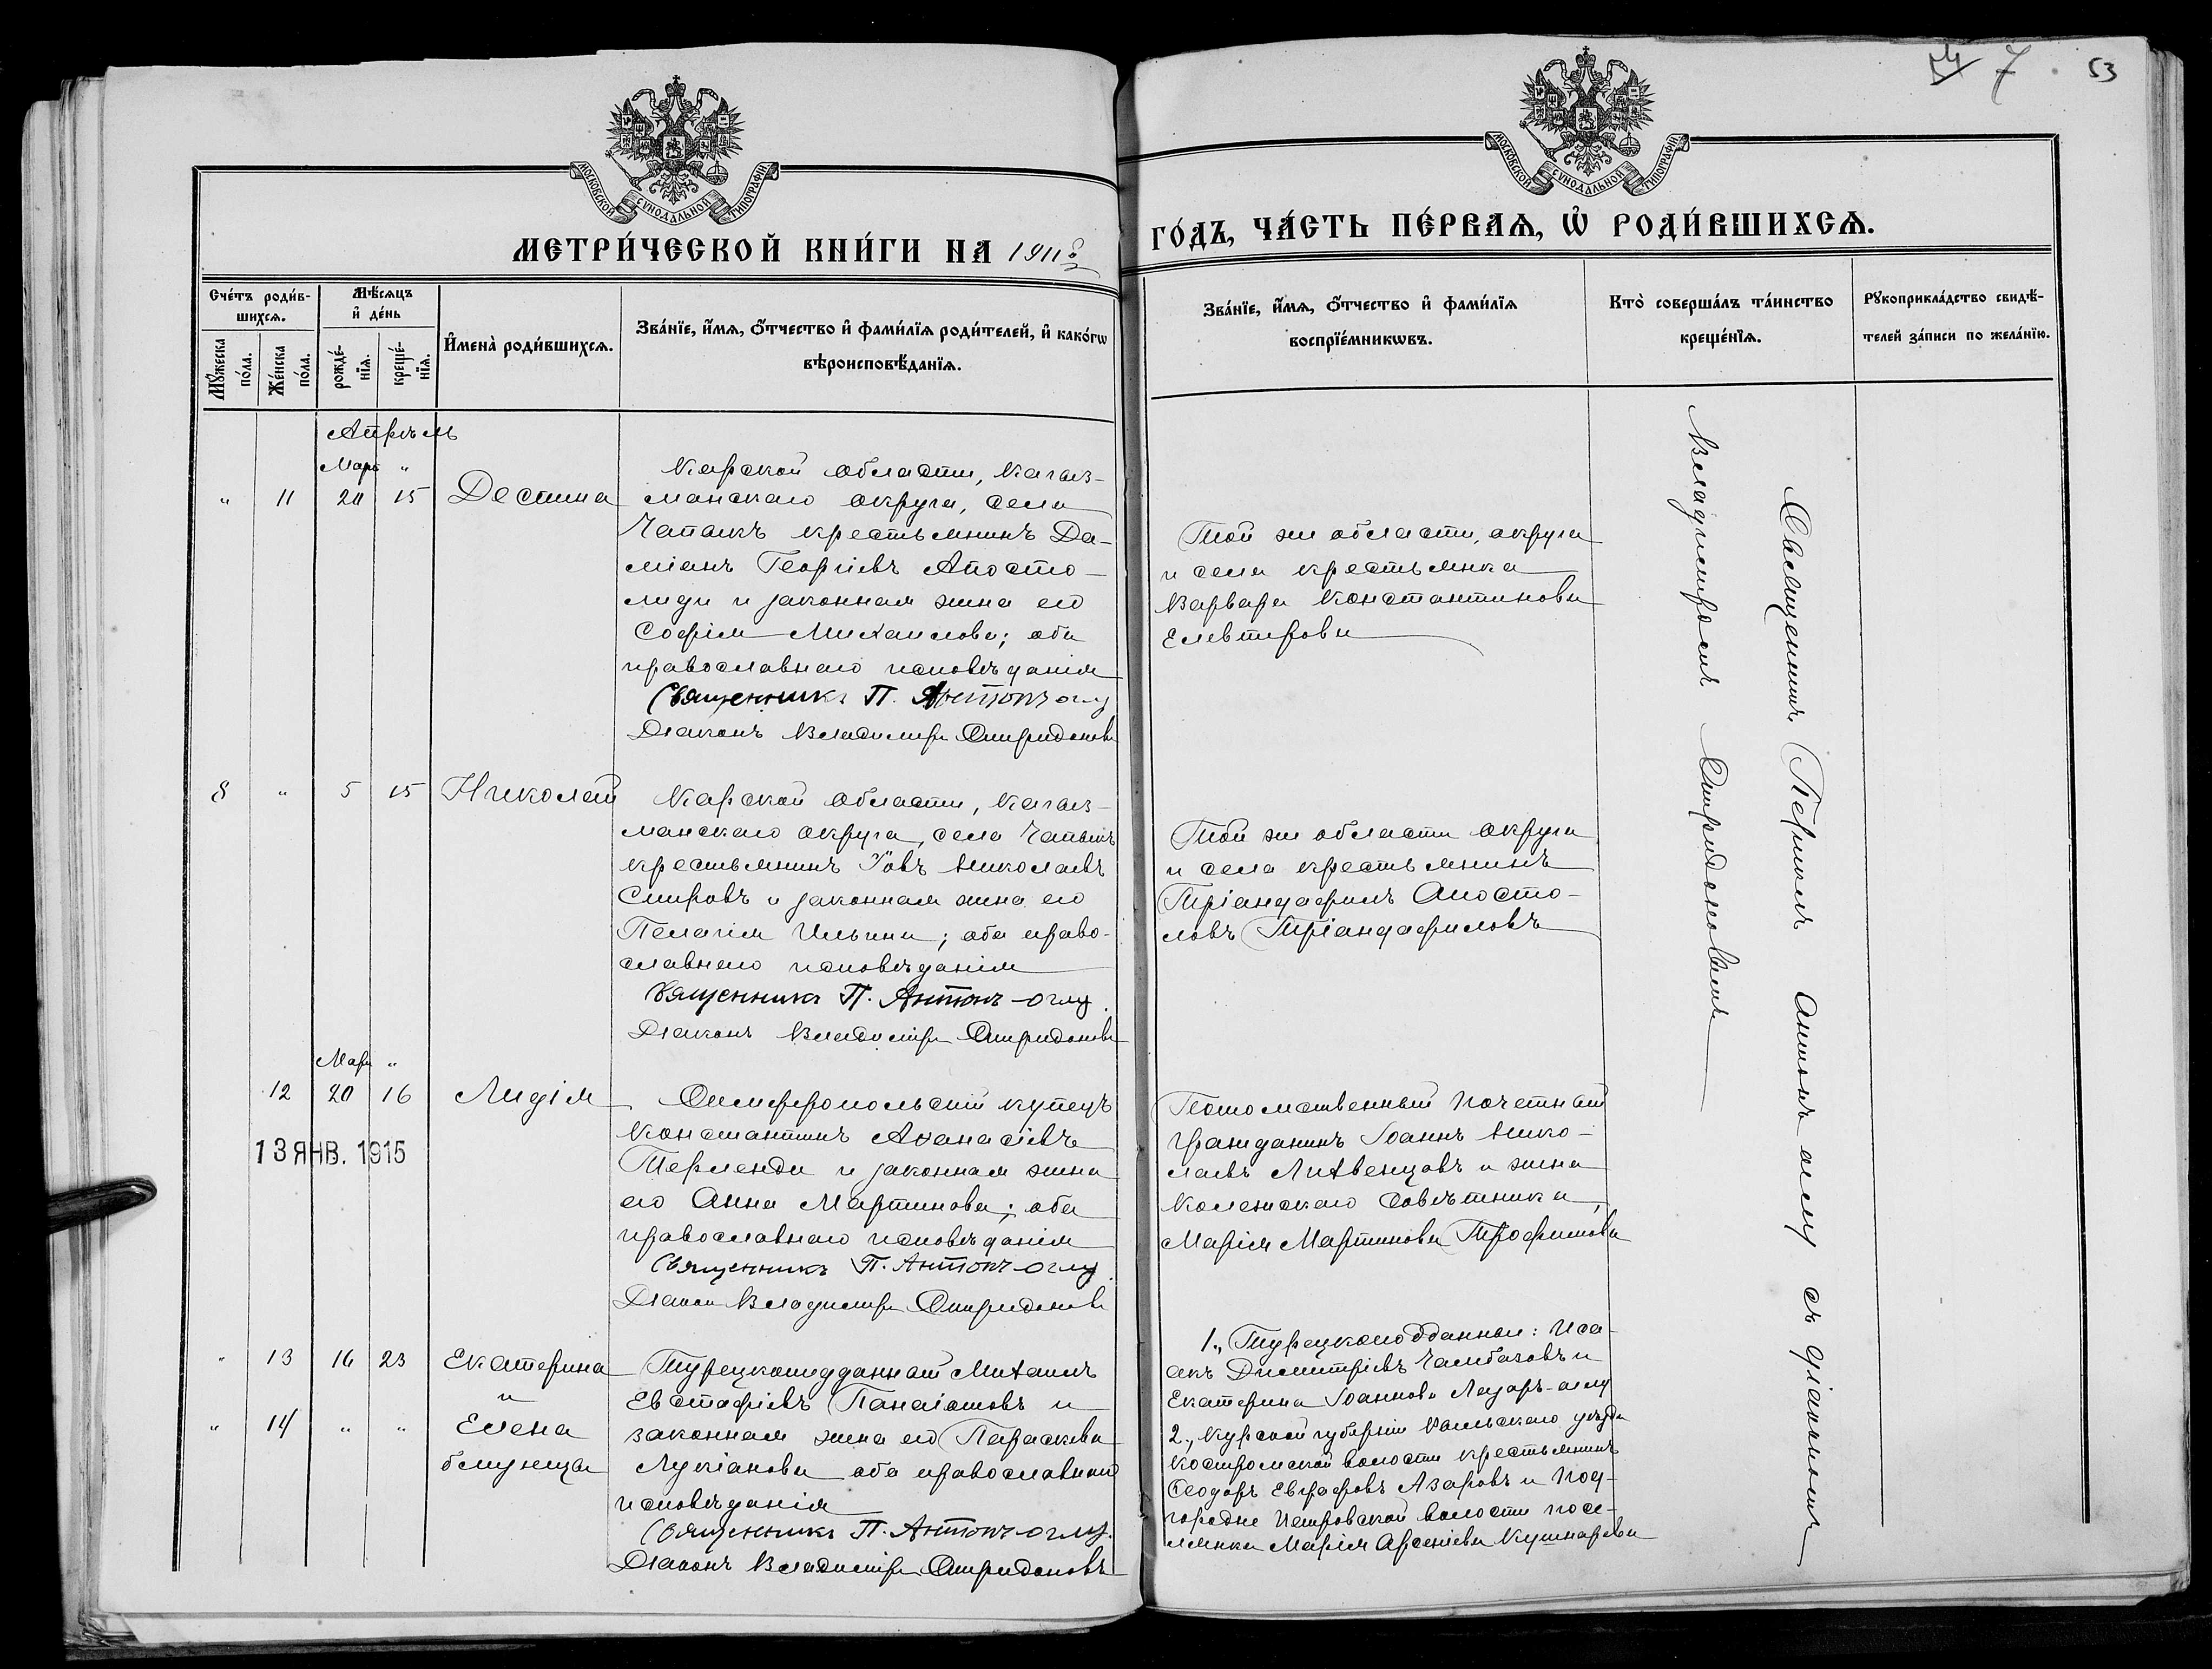 53
7
МОСКОВСКОЙ СѴНОДАЛЬНОЙ ТИПОГРАФІИ
МОСКОВСКОЙ СѴНОДАЛЬНОЙ ТИПОГРАФІИ
МЕТРИ́ЧЕСКОЙ КНИ́ГИ НА 1911й
ГО́ДЪ, ЧА́СТЬ ПЕ́РВАѦ, Ѡ҆ РОДИ́ВШИХСѦ.
Сче́тъ роди́в-
шихсѧ.
Мꙋ́жеска
по́ла.
Же́нска
по́ла.
Мѣ́сѧцъ
и҆ де́нь
рожде́-
нїѧ.
креще́-
нїѧ.
И҆мена̀ роди́вшихсѧ.
Зва́нїе, и҆́мѧ, ѻ҆́тчество и҆ фами́лїѧ роди́телей, и҆ како́гѡ
вѣроисповѣ́данїѧ.
Зва́нїе, и҆́мѧ, ѻ҆́тчество и҆ фами́лїѧ
воспрїе́мникѡвъ.
Кто̀ соверша́лъ та́инство
креще́нїѧ.
Рꙋкоприкла́дство свидѣ́-
телей за́писи по жела́нїю.
Апрѣль
Март "
" 11 20 15 Деспина
Карской области, Кагыз-
манскаго округа, села
Чапыкъ крестьянинъ Да-
міанъ Георгіевъ Апосто-
лиди и законная жена его
Софія Михаилова; оба
православнаго исповѣданія
Священникъ П. Антонъ оглу
Діаконъ Владимiръ Спиридоновъ
Той же области, округа
и села крестьянка
Варвара Константинова
Елевтерова
8 " 5 15 Николай
Карской области, Кагыз-
манскаго округа, села Чапыкъ
крестьянинъ Іовъ Николаевъ
Спировъ и законная жена его
Пелагія Ильина; оба право-
славнаго исповѣданія
Священникъ П. Антонъ-оглу
Діаконъ Владимiръ Спиридоновъ
Той же области округа
и села крестьянинъ
Тріандафилъ Апосто-
ловъ Тріандафиловъ
Март "
12 20 16 Лидія
13 ЯНВ. 1915
Симферопольскій купецъ
Константинъ Аѳанасіевъ
Терленди и законная жена
его Анна Мартинова; оба
православнаго исповѣданія
Священникъ П. Антонъ-оглу
Діакон Владимiръ Спиридоновъ
Потомственный почетный
гражданинъ Іоаннъ Нико-
лаевъ Литвенцовъ и жена
Колежскаго Совѣтника,
Марія Мартинова Трофимова
" 13 16 23 Екатерина
и
" 14 " " Елена
близнецы
Турецкоподданный Михаилъ
Евстафіевъ Панаіотовъ и
законная жена его Параскева
Лукіанова оба православнаго
исповѣданія
Священникъ П. Антонъ-оглу.
Діаконъ Владимiръ Спиридоновъ
1., Турецкоподданные: Иса-
акъ Димитріевъ Чамбазовъ и
Екатерина Іоаннова Лазаръ-оглу
2., Курской губерніи уѣзда
Костромской волости крестьянинъ
Ѳеодоръ Евграфовъ Азаровъ и Под-
городне Петровской волости посе-
лянка Марія Арсеніева Кушнарева
Священникъ Періклъ Антонъ оглу съ діакономъ
Владимiромъ Спиридоновымъ